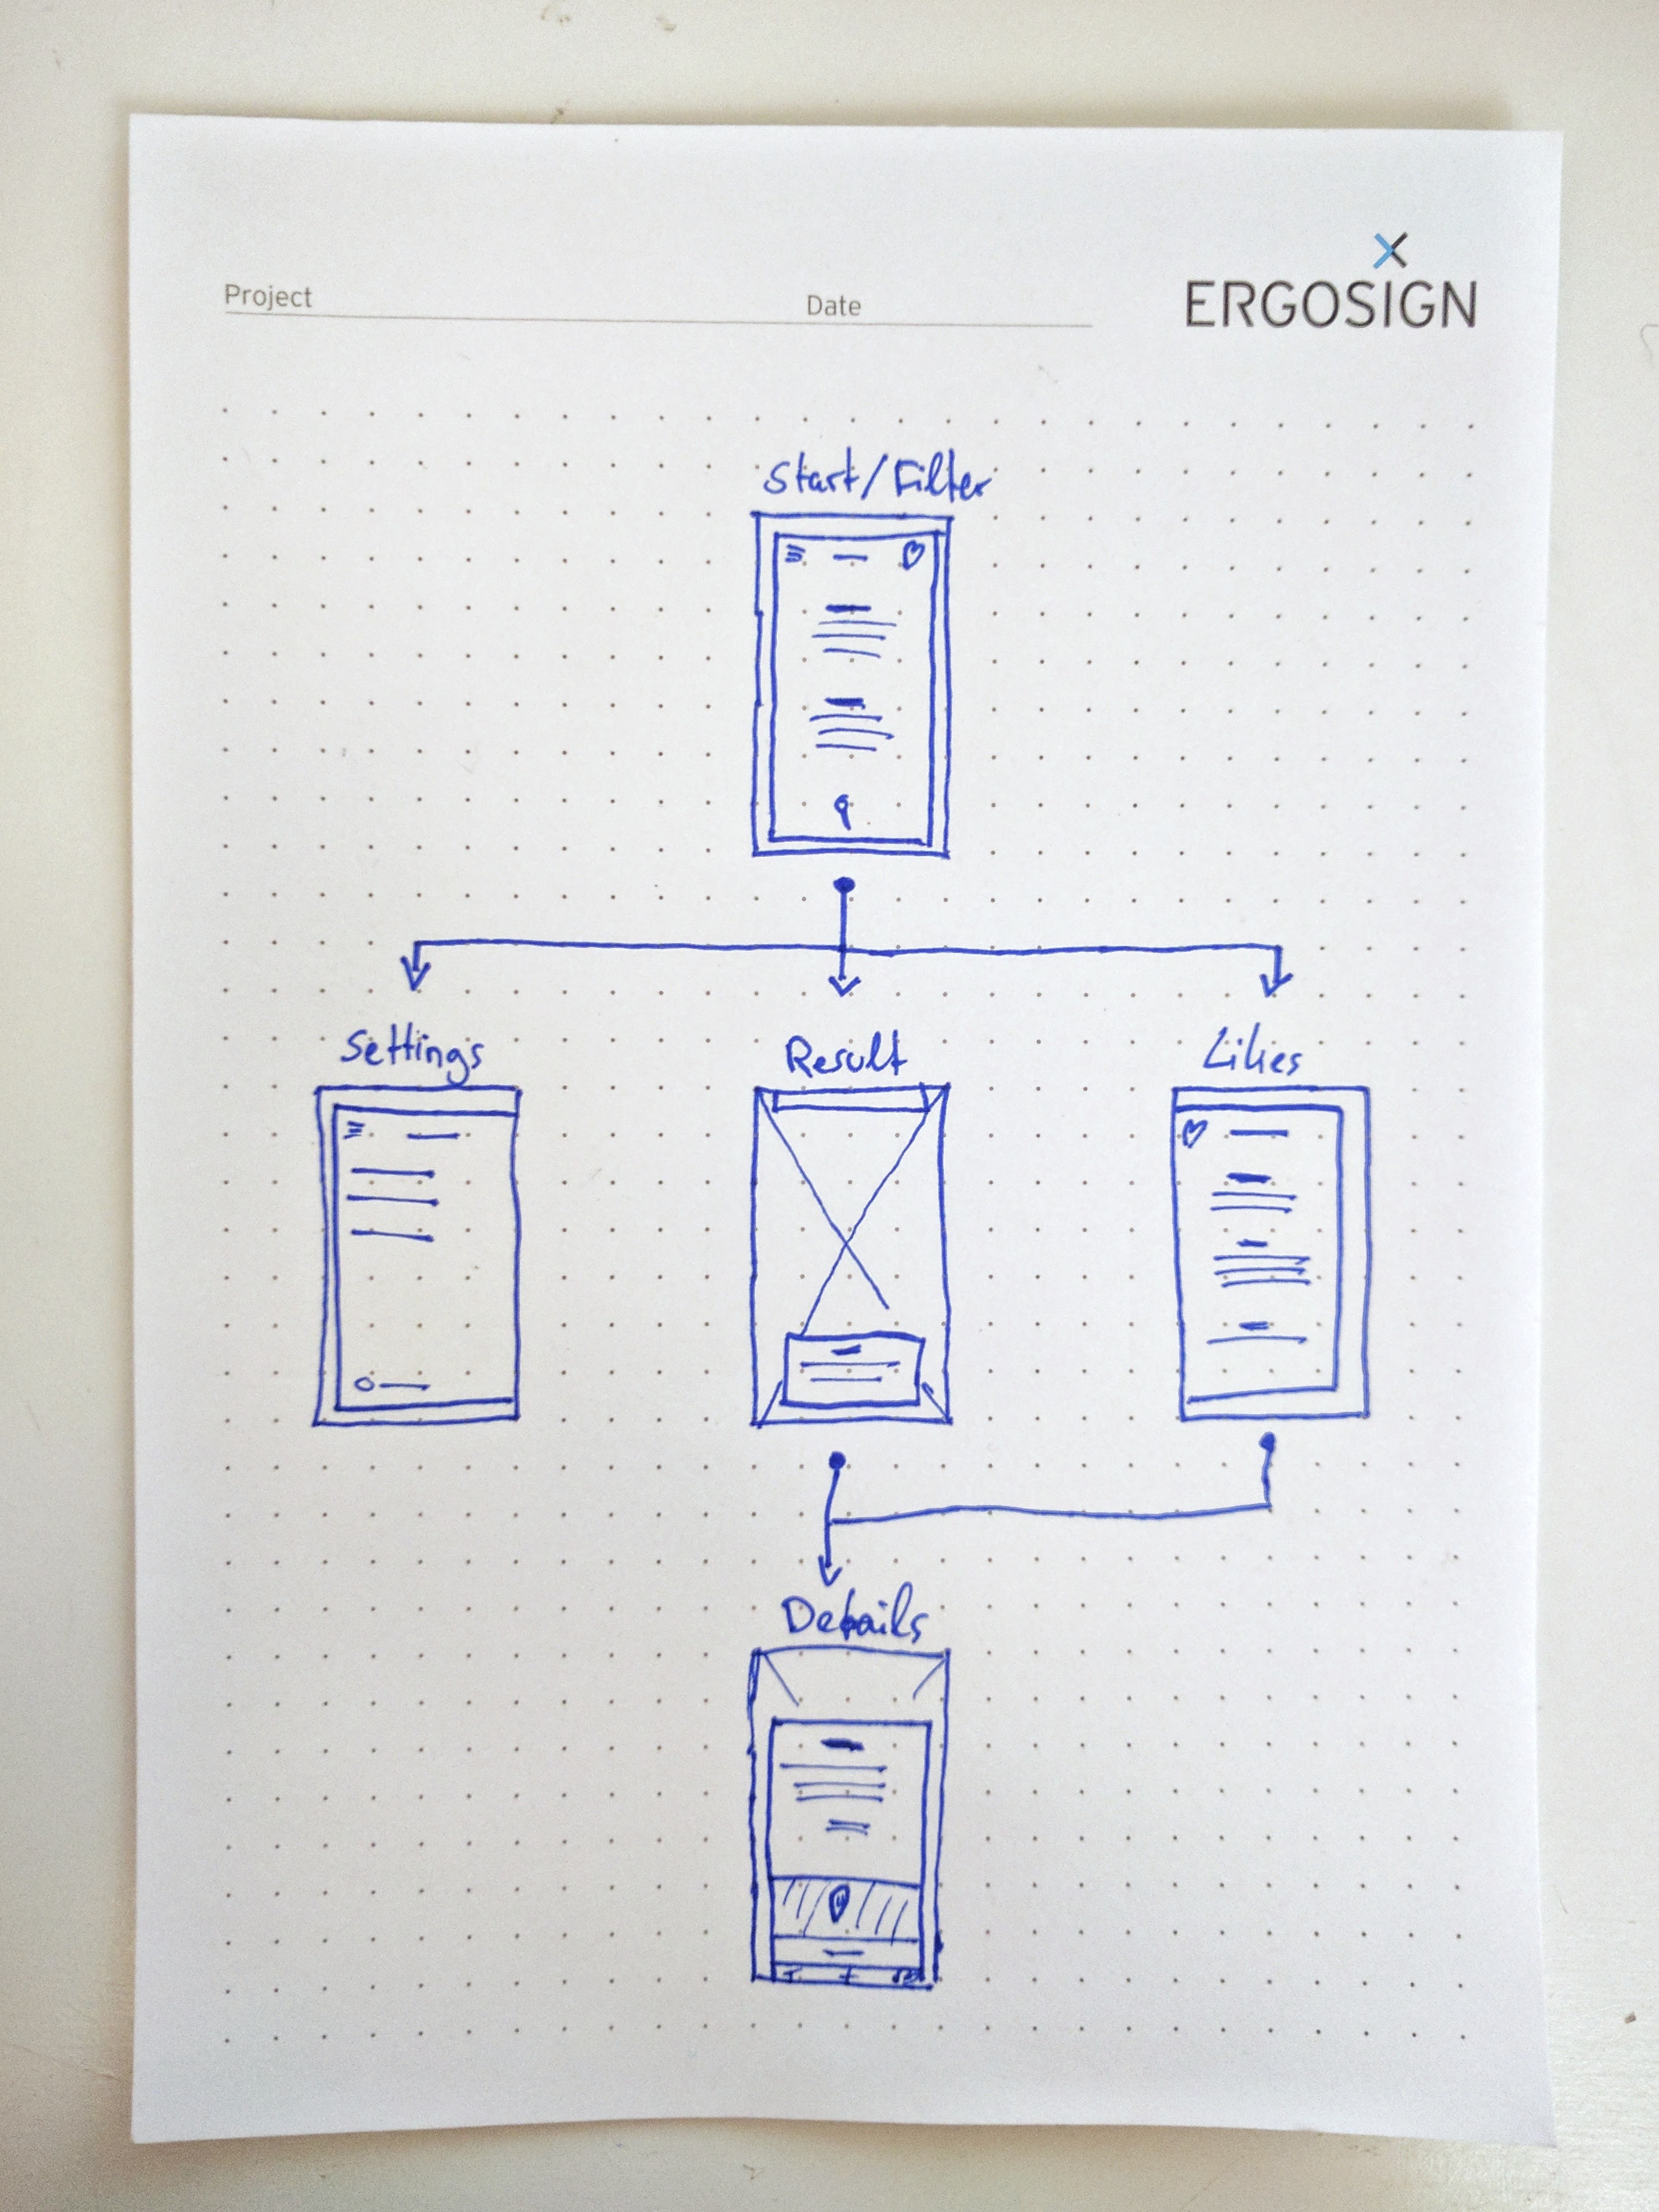 Project Date
ERGOSIGN
Start/Filter
Settings Result Likes
Details